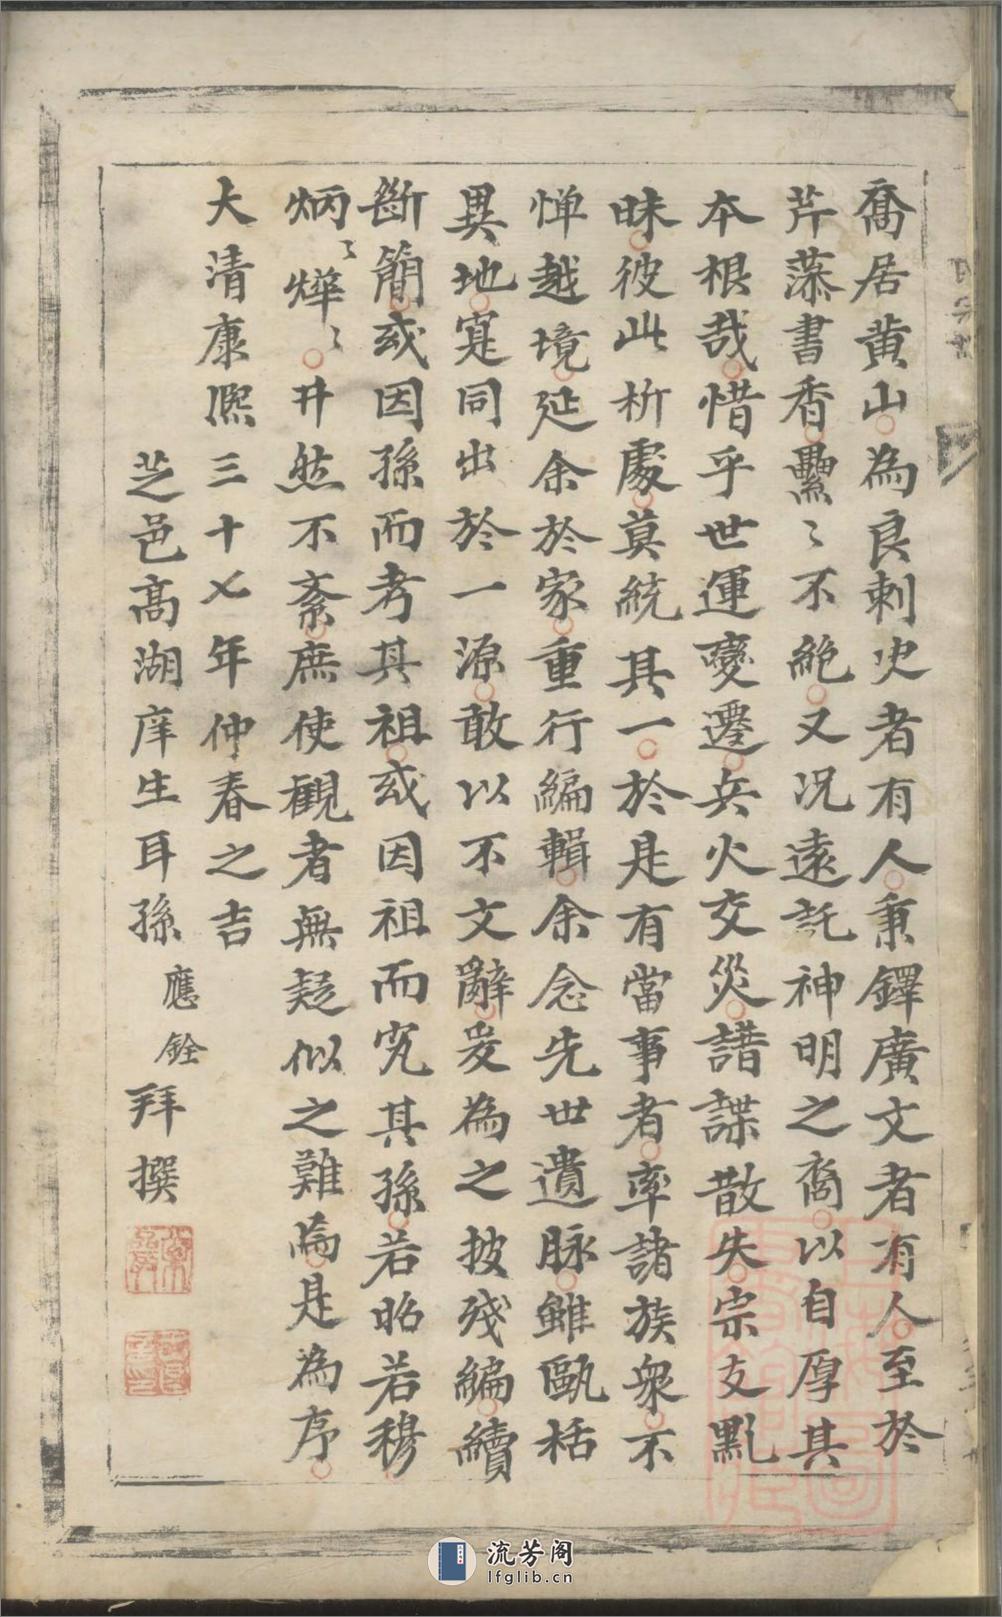 喬居黄山為良刺史者有人秉鐸廣文者有人至於
芹藻書香纍〻不絶又况遠託神明之裔以自厚其
本根哉惜乎世運變遷兵火交災譜諜散失宗支
昧彼此析處莫統其一於是有當事者率諸族衆不
憚越境延余於家重行編輯余念先世遺脉雖甌栝
異地寔同出於一源敢以不文辭爰為之披残編續
斷簡或因孫而考其祖或因祖而究其孫若昭若穆
炳〻燁〻井然不紊庶使觀者無疑似之難焉是為序
大清康熈三十七年仲春之吉
芝邑高湖庠生耳孫應銓拜撰
流芳阁
lfglib.cn